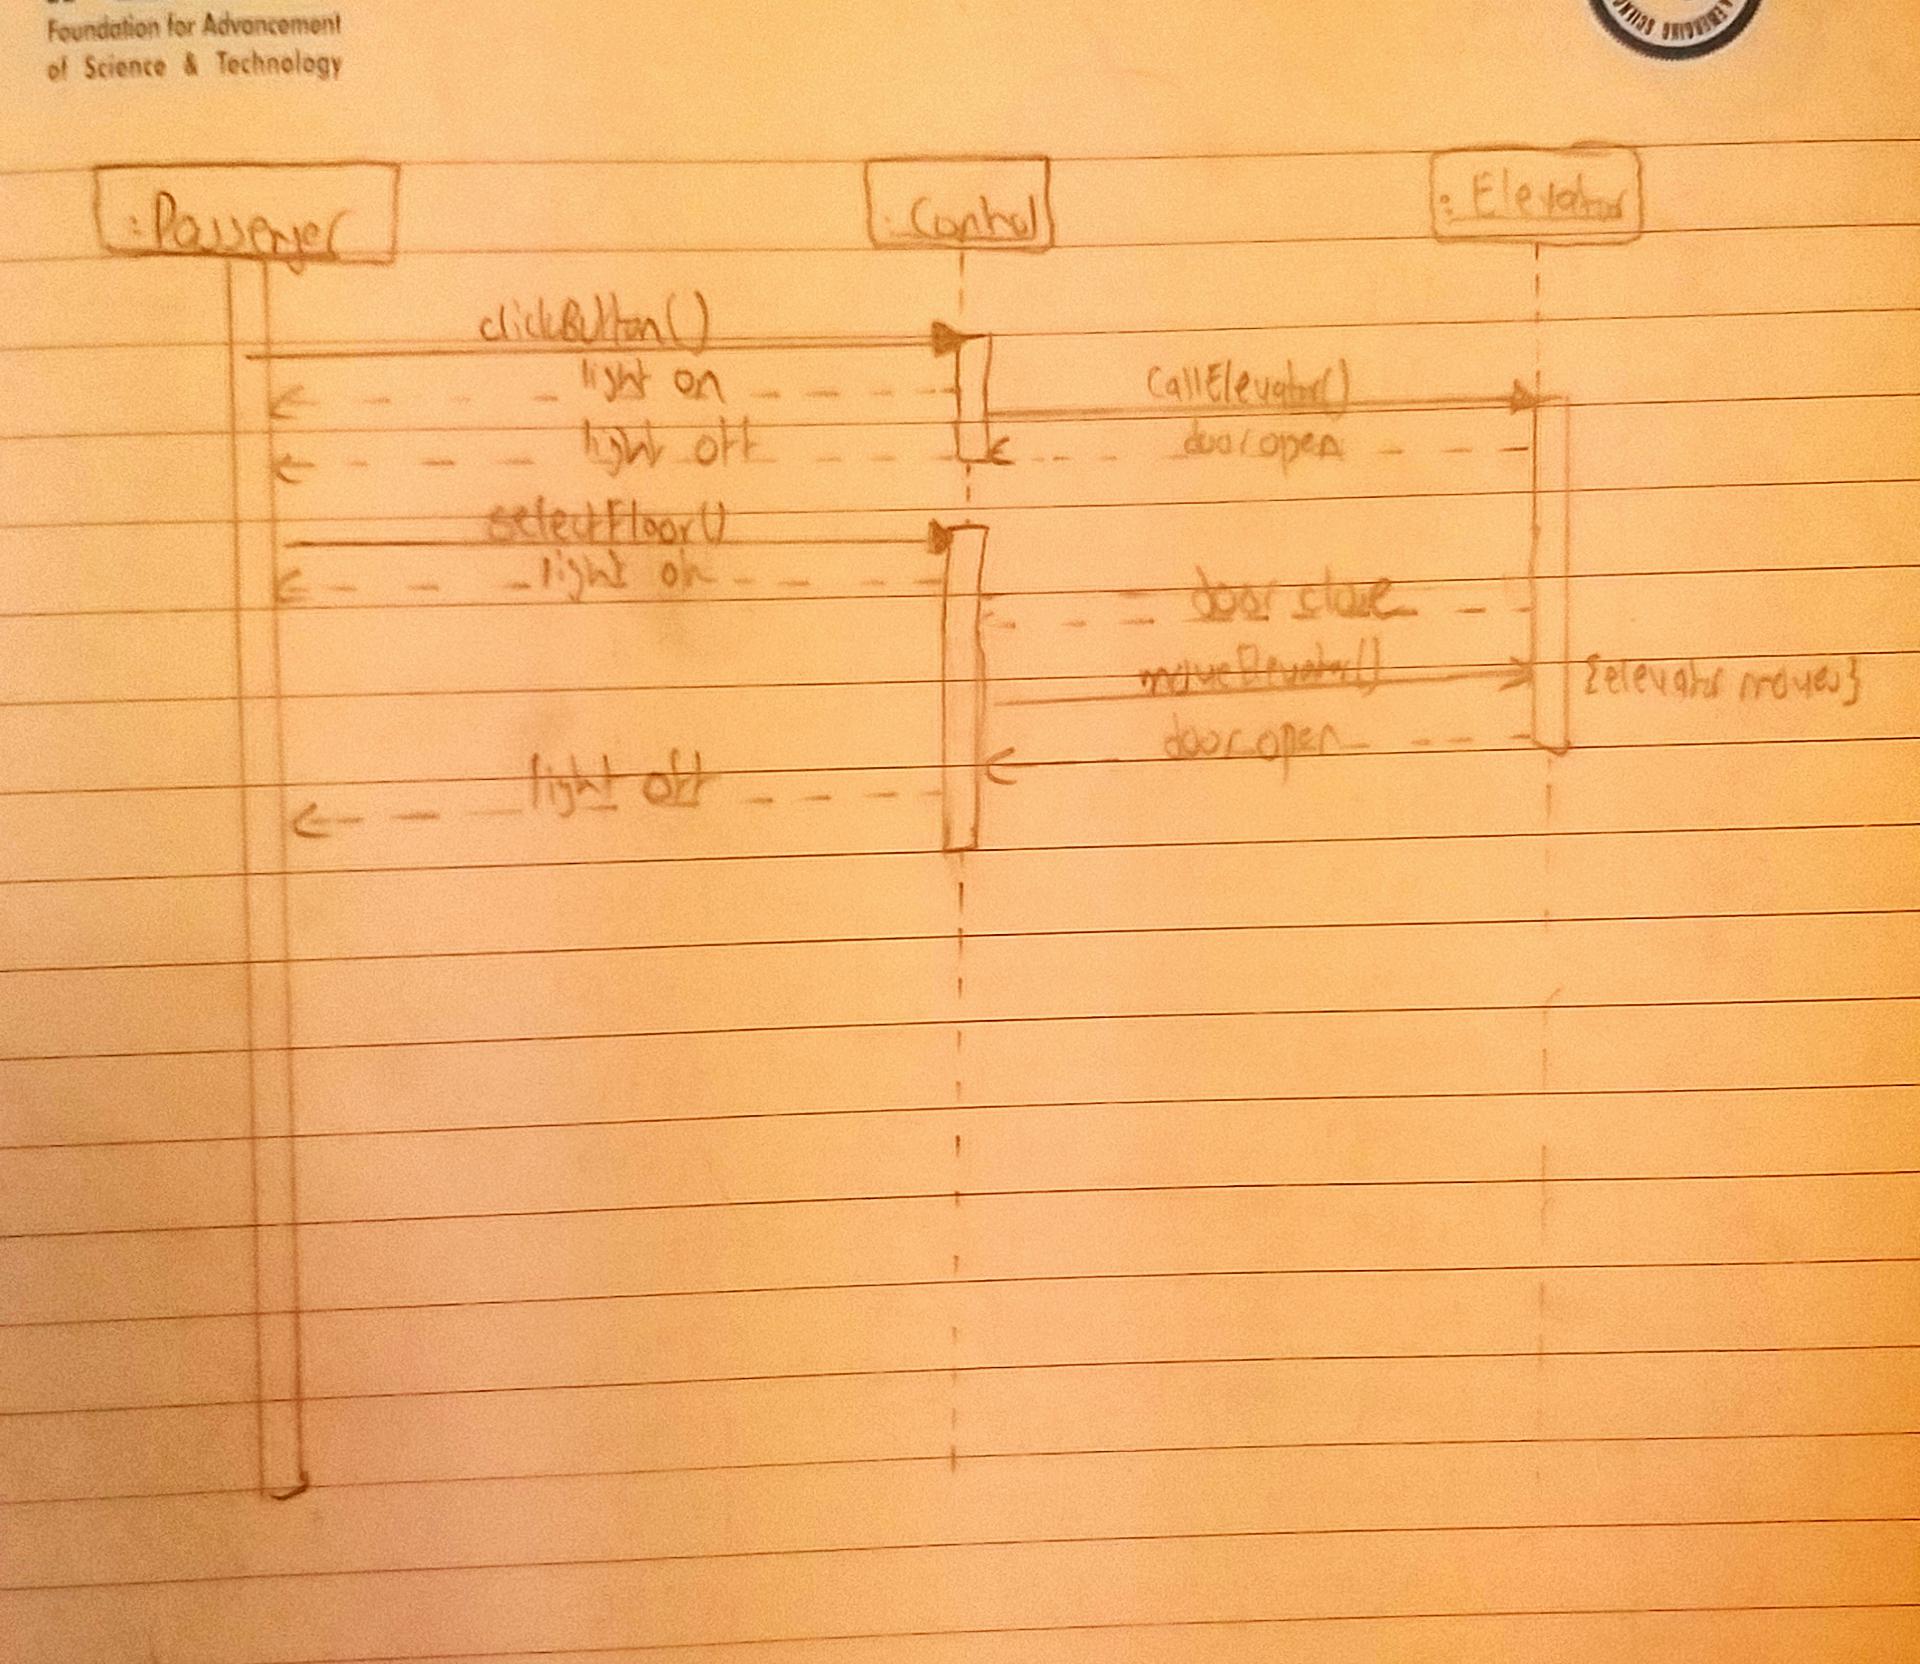 Foundation for Advancement
of Science & Technology
:Passenger
:Control
:Elevator
clickButton()
light on
callElevator()
light off
door open
selectFloor()
light on
door close
moveElevator()
{elevator moves}
door open
light off